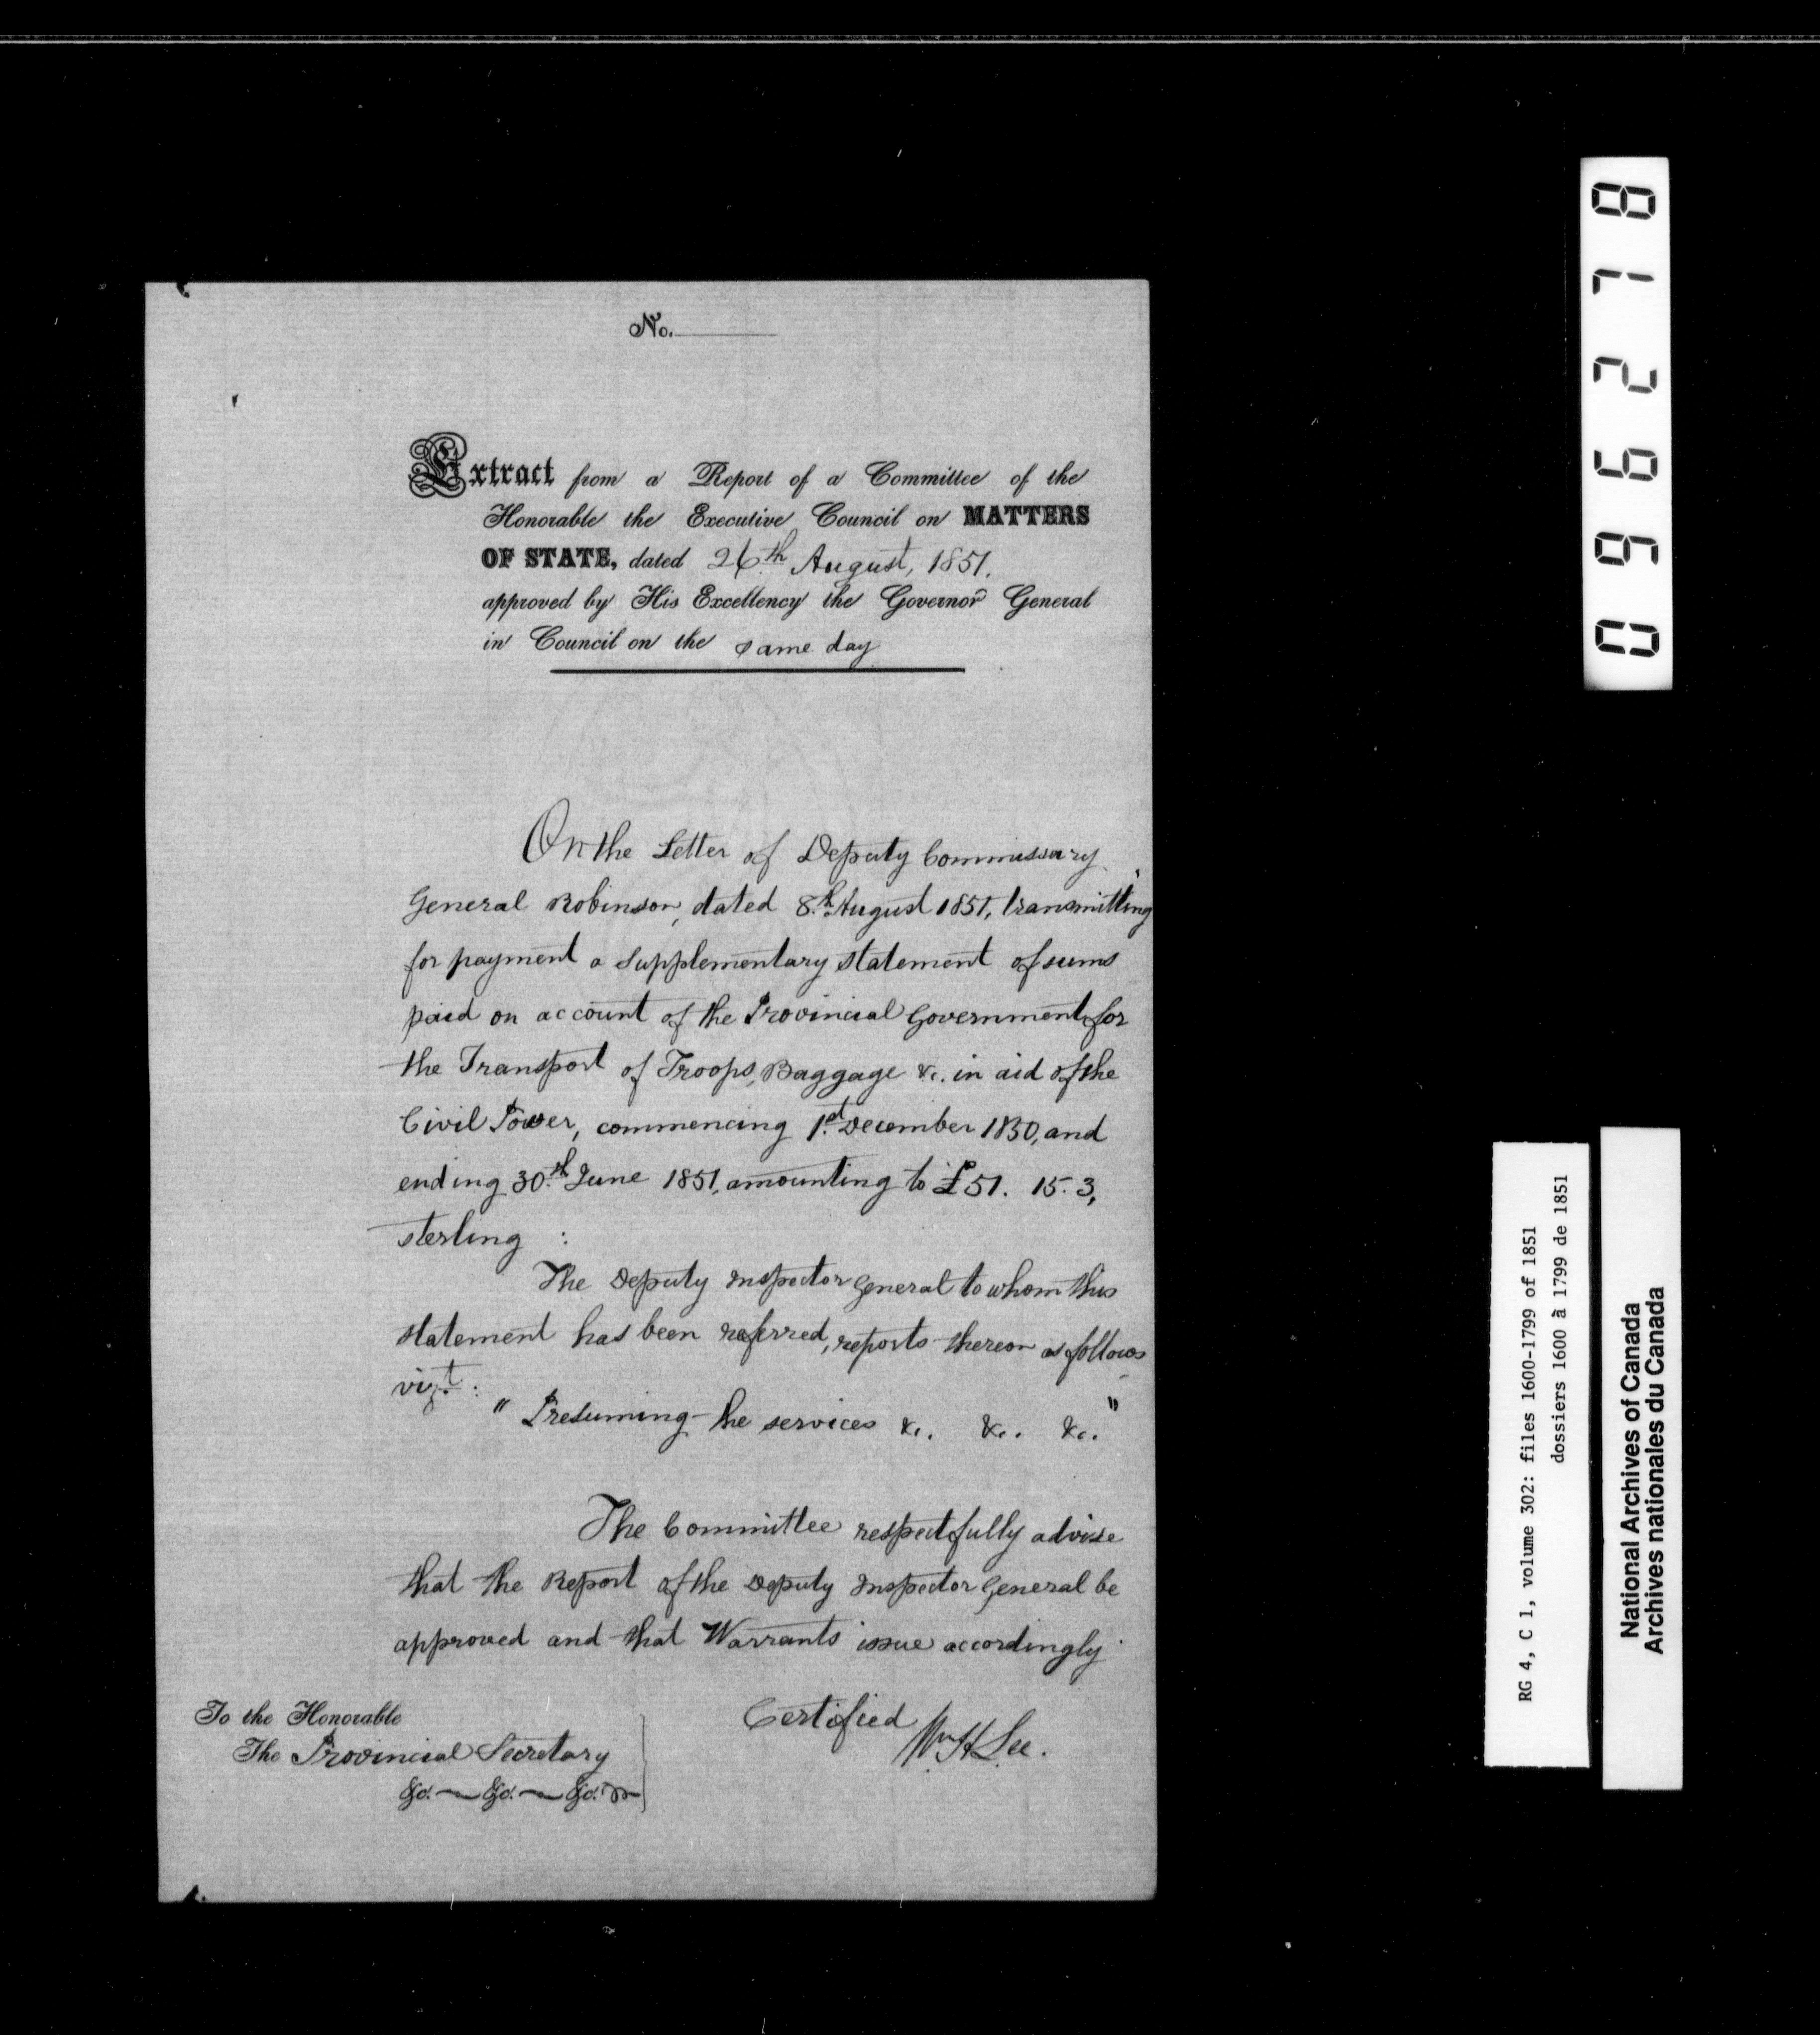 No.
Extract from a Report of a Committee of the
Honorable the Executive Council on MATTERS
OF STATE, dated 26th August, 1851.
approved by His Excellency the Governor General
in Council on the same day
On the Letter of Deputy Commissary
General Robinson, dated 8th August 1851, transmitting
for payment a supplementary statement of sums
paid on account of the Provincial Government for
the Transport of Troops, Baggage &c. in aid of the
Civil Power, commencing 1st December 1850, and
ending 30th June 1851, amounting to £51. 15. 3,
sterling :
The Deputy Inspector General to whom this
statement has been referred, reports thereon as follows
vizt :
" Presuming the services &c. &c. &c. "
The Committee respectfully advise
that the Report of the Deputy Inspector General be
approved and that Warrants issue accordingly
Certified
Wm H Lee.
To the Honorable
The Provincial Secretary
&c. &c. &c.
096278
RG 4, C 1, volume 302: files 1600-1799 of 1851
dossiers 1600 à 1799 de 1851
National Archives of Canada
Archives nationales du Canada